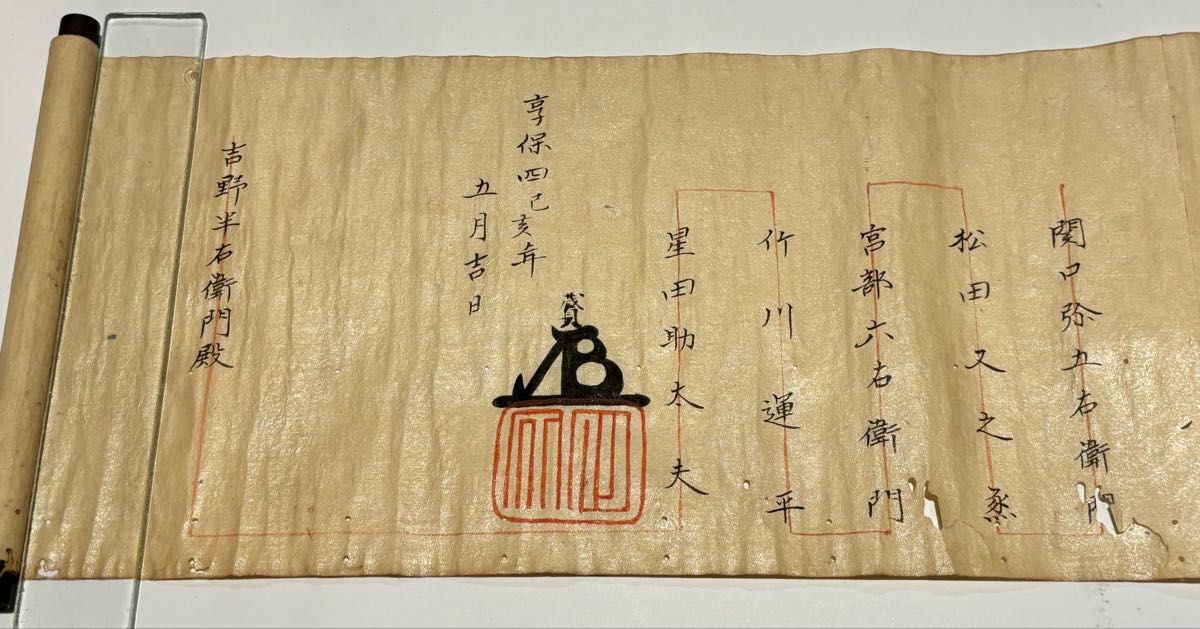 関口弥五右衛門
松田又之烝
宮部六右衛門
竹川運平
星田助太夫
享保四己亥年
五月吉日
吉野半右衛門殿